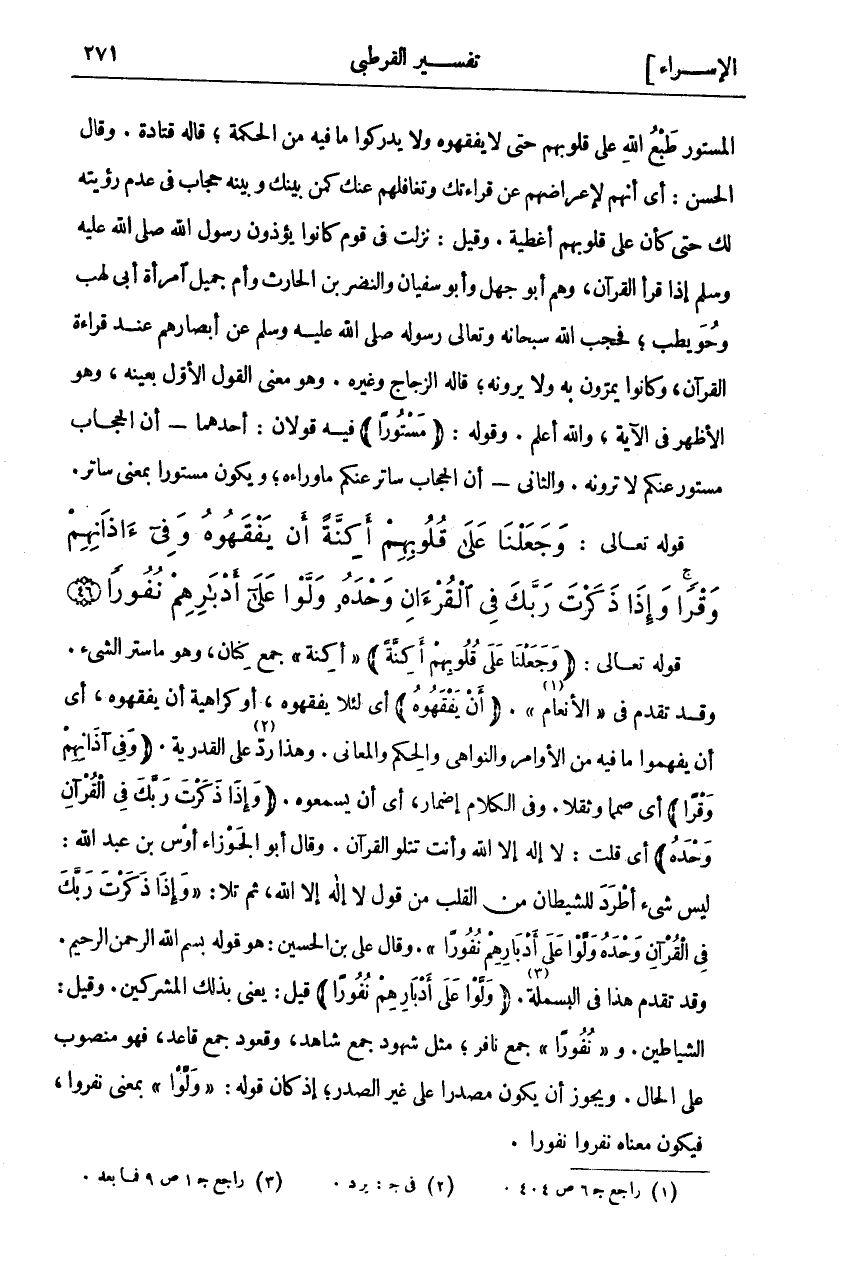 الإســراء] تفســير القرطبى ٢٧١
المستور طَبْعُ اللهِ على قلوبهم حتى لا يفقهوه ولا يدركوا ما فيه من الحكمة ؛ قاله قتادة . وقال
الحسن : أى أنهم لإعراضهم عن قراءتك وتغافلهم عنك كمن بينك وبينه حجاب فى عدم رؤيته
لك حتى كأن على قلوبهم أغطية . وقيل : نزلت فى قوم كانوا يؤذون رسول الله صلى الله عليه
وسلم إذا قرأ القرآن، وهم أبو جهل وأبو سفيان والنضر بن الحارث وأم جميل آمرأة أبى لهب
وحُوَيطب ؛ فحجب الله سبحانه وتعالى رسوله صلى الله عليه وسلم عن أبصارهم عند قراءة
القرآن، وكانوا يمرّون به ولا يرونه؛ قاله الزجاج وغيره . وهو معنى القول الأوّل بعينه ، وهو
الأظهر فى الآية ، والله أعلم . وقوله : ﴿ مَسْتُورًا ﴾ فيه قولان : أحدهما — أن الحجاب
مستور عنكم لا ترونه . والثانى — أن الحجاب ساتر عنكم ماوراءه؛ ويكون مستورا بمعنى ساتر.
قوله تعالى : وَجَعَلْنَا عَلَىٰ قُلُوبِهِمْ أَكِنَّةً أَن يَفْقَهُوهُ وَفِىٓ ءَاذَانِهِمْ
وَقْرًا ۚ وَإِذَا ذَكَرْتَ رَبَّكَ فِى ٱلْقُرْءَانِ وَحْدَهُۥ وَلَّوْا عَلَىٰٓ أَدْبَٰرِهِمْ نُفُورًا ۝٤٦
قوله تعالى : ﴿ وَجَعَلْنَا عَلَى قُلُوبِهِمْ أَكِنَّةً ﴾ « أكنة » جمع كِنان، وهو ماستر الشىء .
وقد تقدم فى « الأنعام (١) » . ﴿ أَنْ يَفْقَهُوهُ ﴾ أى لئلا يفقهوه ، أو كراهية أن يفقهوه ، أى
أن يفهموا ما فيه من الأوامر والنواهى والحِكم والمعانى . وهذا ردّ (٢) على القدرية . ﴿ وَفِى آذَانِهِمْ
وَقْرًا ﴾ أى صمما وثقلا . وفى الكلام إضمار، أى أن يسمعوه . ﴿ وَإِذَا ذَكَرْتَ رَبَّكَ فِى الْقُرْآنِ
وَحْدَهُ ﴾ أى قلت : لا إله إلا الله وأنت تتلو القرآن . وقال أبو الجَوْزاء أَوْس بن عبد الله :
ليس شىء أَطْرَدَ للشيطان من القلب من قول لا إلٰه إلا الله، ثم تلا : « وَإِذَا ذَكَرْتَ رَبَّكَ
فِى الْقُرْآنِ وَحْدَهُ وَلَّوْا عَلَى أَدْبَارِهِمْ نُفُورًا » . وقال على بن الحسين : هو قوله بسم الله الرحمن الرحيم .
وقد تقدم هذا فى البسملة (٣) . ﴿ وَلَّوْا عَلَى أَدْبَارِهِمْ نُفُورًا ﴾ قيل : يعنى بذلك المشركين . وقيل :
الشياطين . و « نُفُورًا » جمع نافر ؛ مثل شهود جمع شاهد، وقعود جمع قاعد، فهو منصوب
على الحال . ويجوز أن يكون مصدرا على غير الصدر؛ إذ كان قوله : « وَلَّوْا » بمعنى نفروا ،
فيكون معناه نفروا نفورا .
(١) راجع جـ ٦ ص ٤٠٤ . (٢) فى جـ : يرد . (٣) راجع جـ ١ ص ٩ فما بعد .